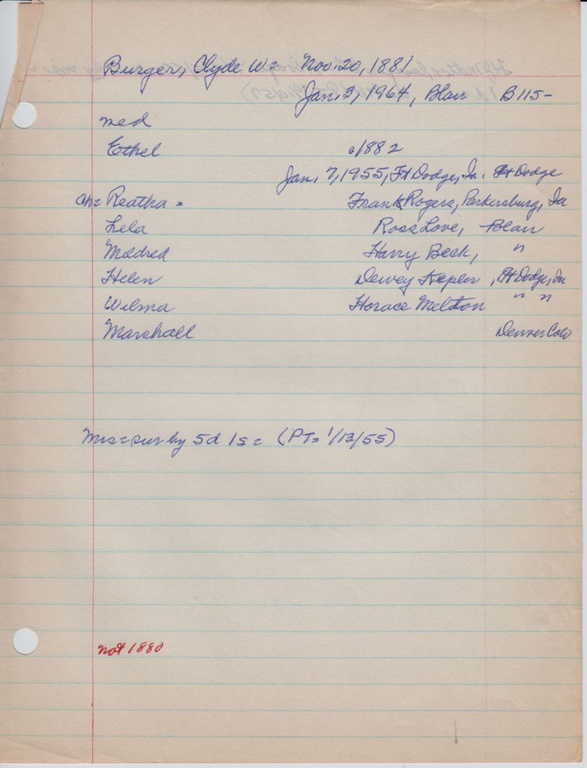 Burger, Clyde W= Nov. 20, 1881
Jan. 3, 1964, Blair B115-
med
Ethel a/1882
Jan. 7, 1955, Ft Dodge, Ia. Ft Dodge
ch= Reatha = Frank Rogers, Parkersburg, Ia
Lela Ross Love, Blair
Mildred Harry Besh, "
Helen Dewey Kepler, Ft Dodge, Ia
Wilma Horace Melton " "
Marshall Denver Colo
Mrs = sur by 5d 1s = (PT= 1/13/55)
not 1880